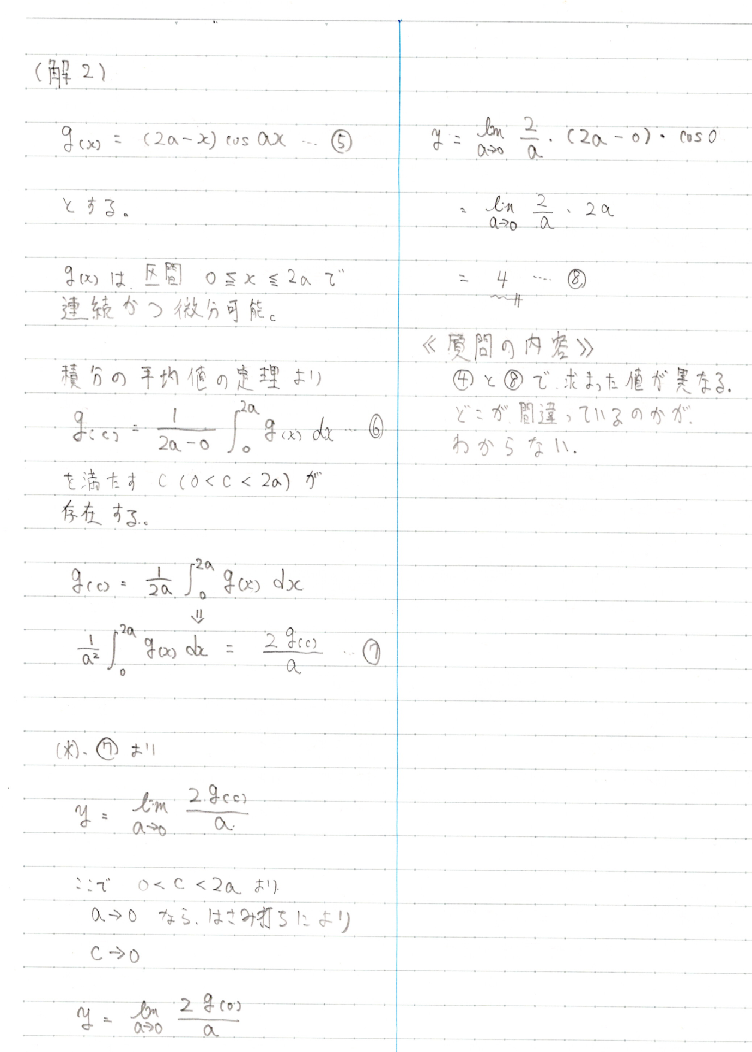 (解2)
g(x) = (2a-x) cos ax … ⑤
とする。
g(x) は 区間 0 ≦ x ≦ 2a で
連続かつ微分可能。
積分の平均値の定理より
g(c) = \frac{1}{2a-0} \int_0^{2a} g(x) dx … ⑥
を満たす c (0 < c < 2a) が
存在する。
g(c) = \frac{1}{2a} \int_0^{2a} g(x) dx
⇓
\frac{1}{a^2} \int_0^{2a} g(x) dx = \frac{2g(c)}{a} … ⑦
(※)、⑦ より
y = \lim_{a→0} \frac{2g(c)}{a}
ここで 0 < c < 2a より
a→0 なら、はさみ打ちにより
c→0
y = \lim_{a→0} \frac{2g(0)}{a}
y = \lim_{a→0} \frac{2}{a} ・ (2a-0) ・ cos0
= \lim_{a→0} \frac{2}{a} ・ 2a
= 4 … ⑧
《質問の内容》
④と⑧で求まった値が異なる.
どこが間違っているのかが、
わからない.